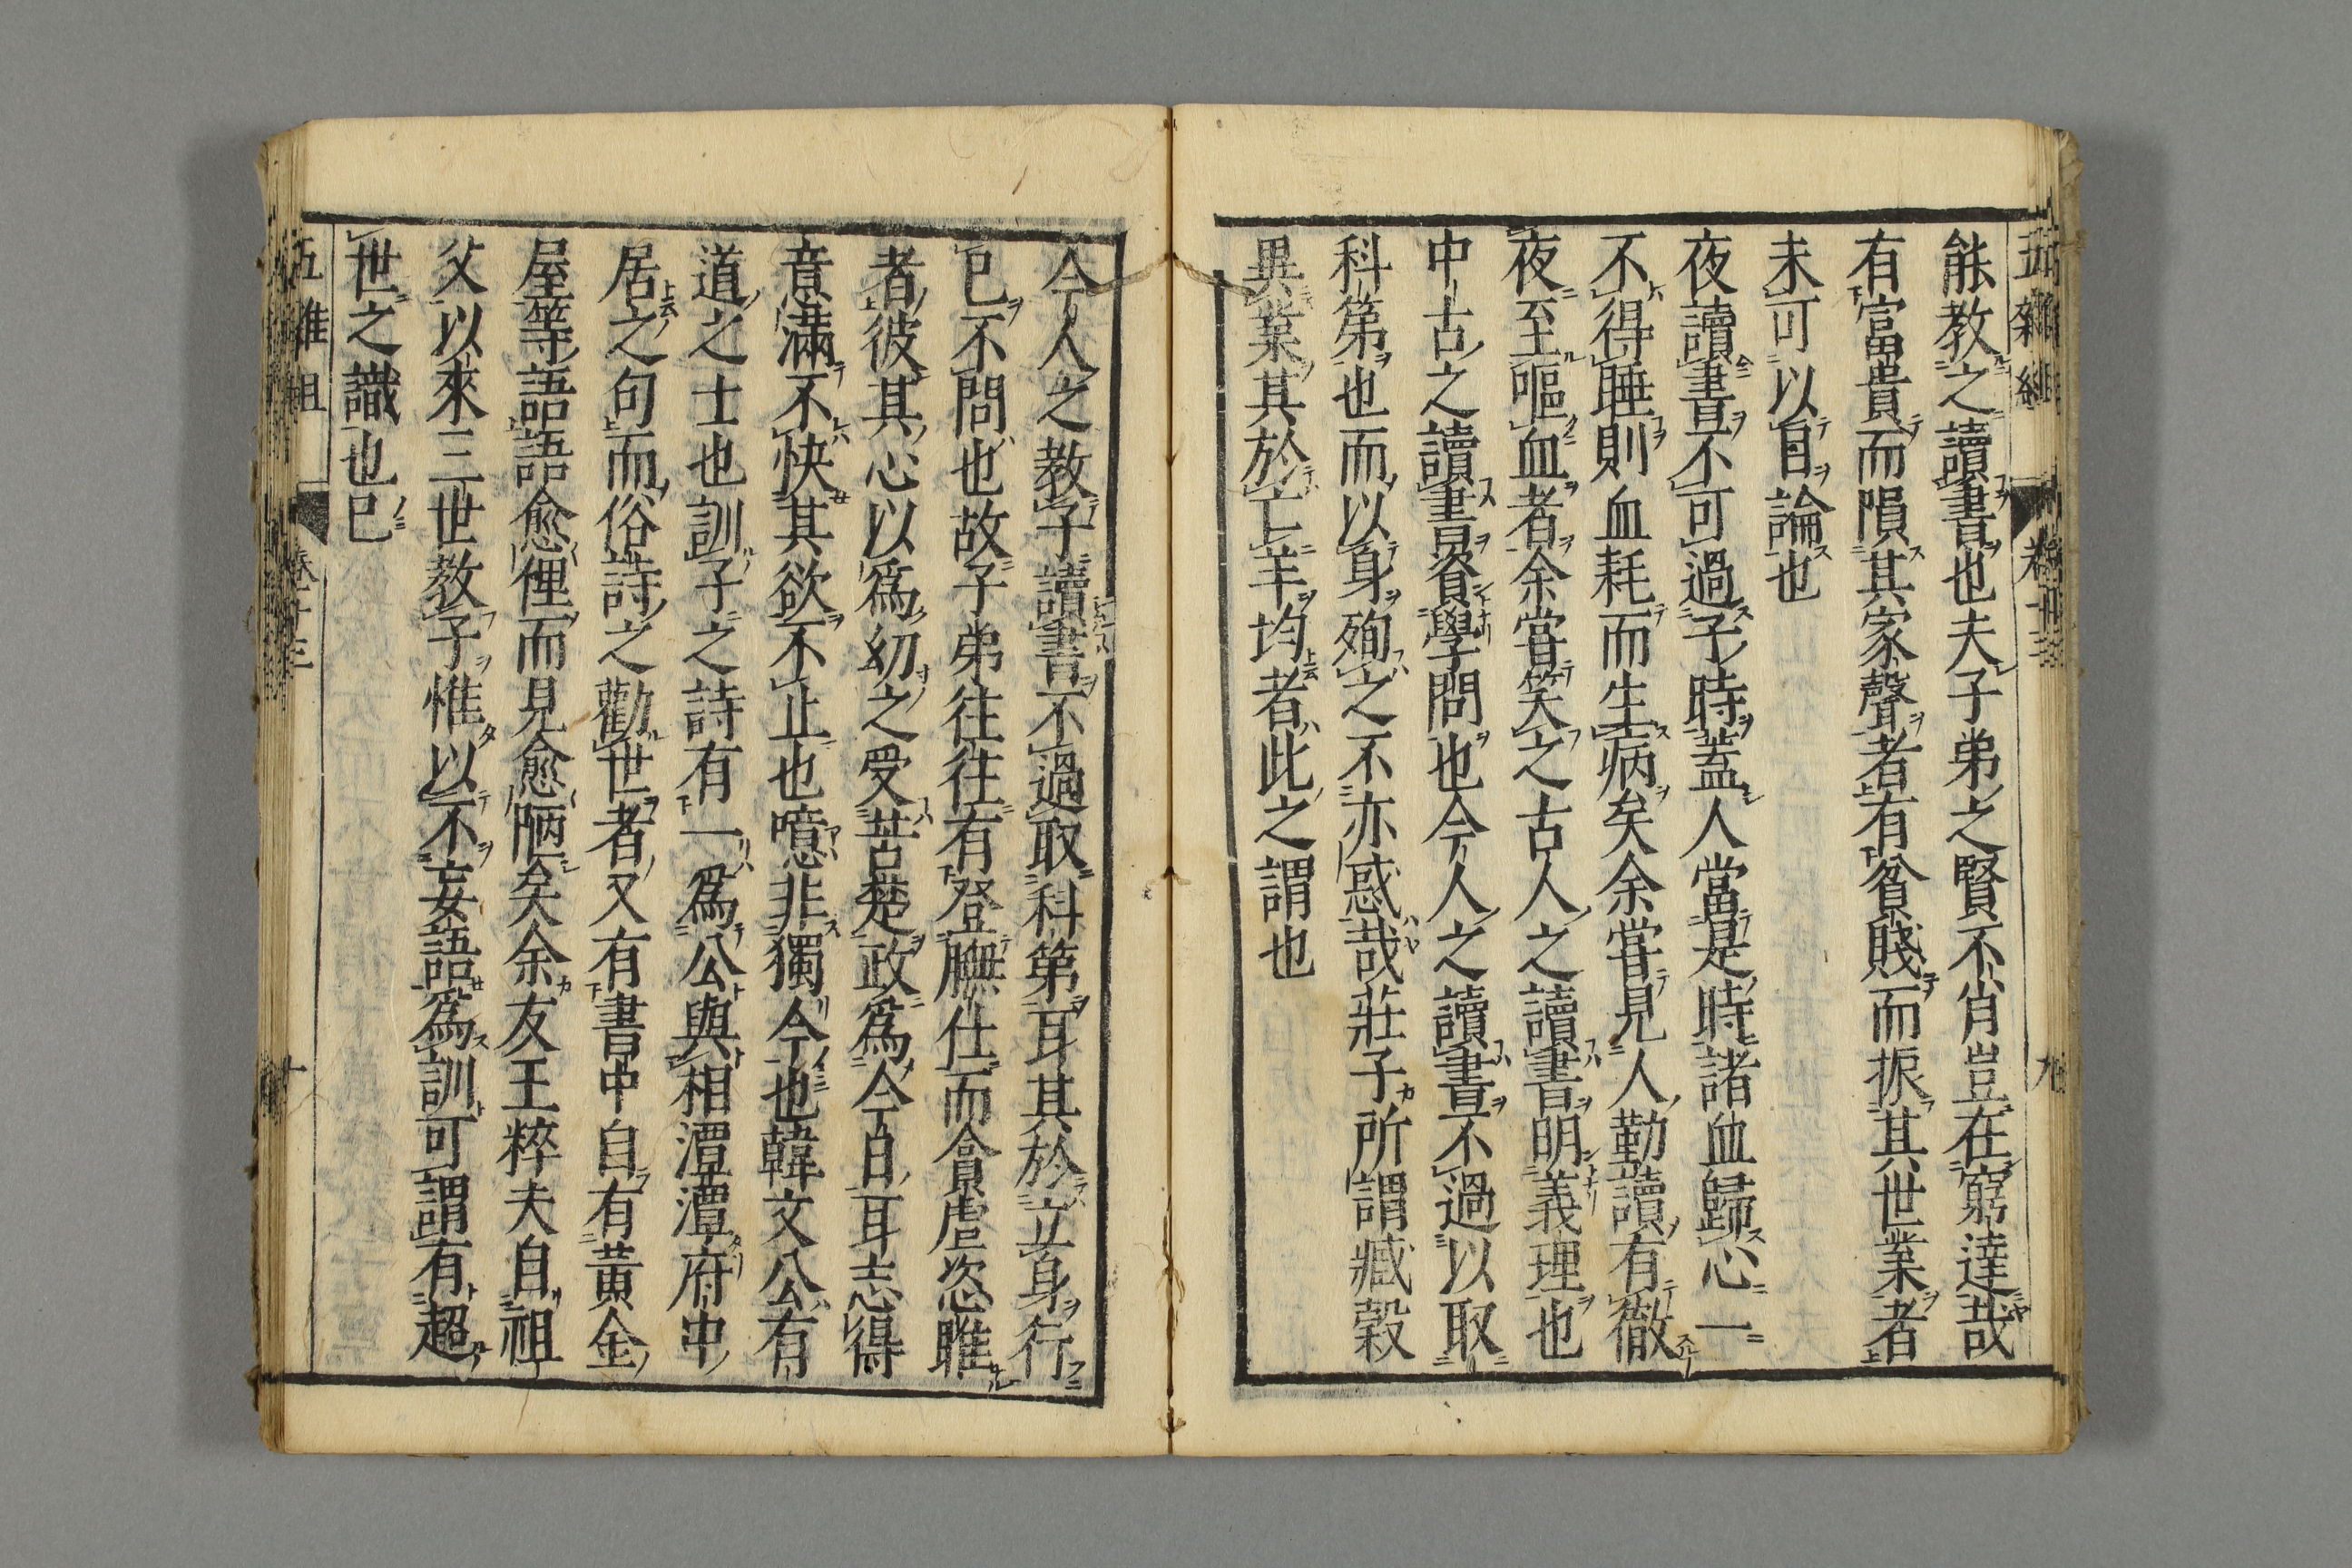 五雜組 卷十三 九
能教之讀書也夫子弟之賢不肖豈在窮達哉
有富貴而隕其家聲者有貧賤而振其世業者
未可以自論也
夜讀書不可過子時蓋人當是時諸血歸心一
不得睡則血耗而生病矣余嘗見人勤讀有徹
夜至嘔血者余嘗笑之古人之讀書明義理也
中古之讀書資學問也今人之讀書不過以取
科第也而以身殉之不亦惑哉莊子所謂臧穀
異業其於亡羊均者此之謂也
今人之教子讀書不過取科第耳其於立身行
已不問也故子弟往往有登膴仕而貪虐恣睢
者彼其心以爲幼之受苦楚政爲今日耳志得
意滿不快其欲不止也噫非獨今也韓文公有
道之士也訓子之詩有一爲公與相潭潭府中
居之句而俗詩之勸世者又有書中自有黃金
屋等語語愈俚而見愈陋矣余友王粹夫自祖
父以來三世教子惟以不妄語爲訓可謂有超
世之識也已
五雜組 卷十三 十